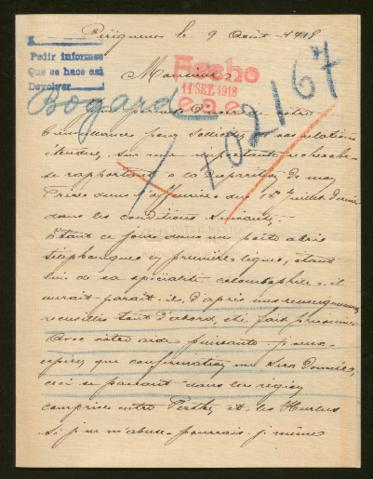 Périgueux le 9 Août 1918
A
Pedir informes
Que se hace así
Devolver
Hecho
11 SET. 1918
Monsieur
Bogard
402167
bienveillance pour solliciter vos relations
étendues, sur une importante recherche
se rapportant à la Disparition de mon
Frère dans l'offensive du 15 Juillet dernier
dans les conditions suivantes:
Étant ce jour dans un poste abris
téléphoniques en premières lignes, étant
lui de sa spécialité colombophile. il
aurait parait-il, d'après mes renseignements
recueillis tout d'abord, été fait prisonnier
Avec votre aide puissante j'ose
espérer que confirmation me sera donnée,
ceci se passant dans la région
comprise entre Perthes et les Hurlus
Si je ne m'abuse. pourrais-je même